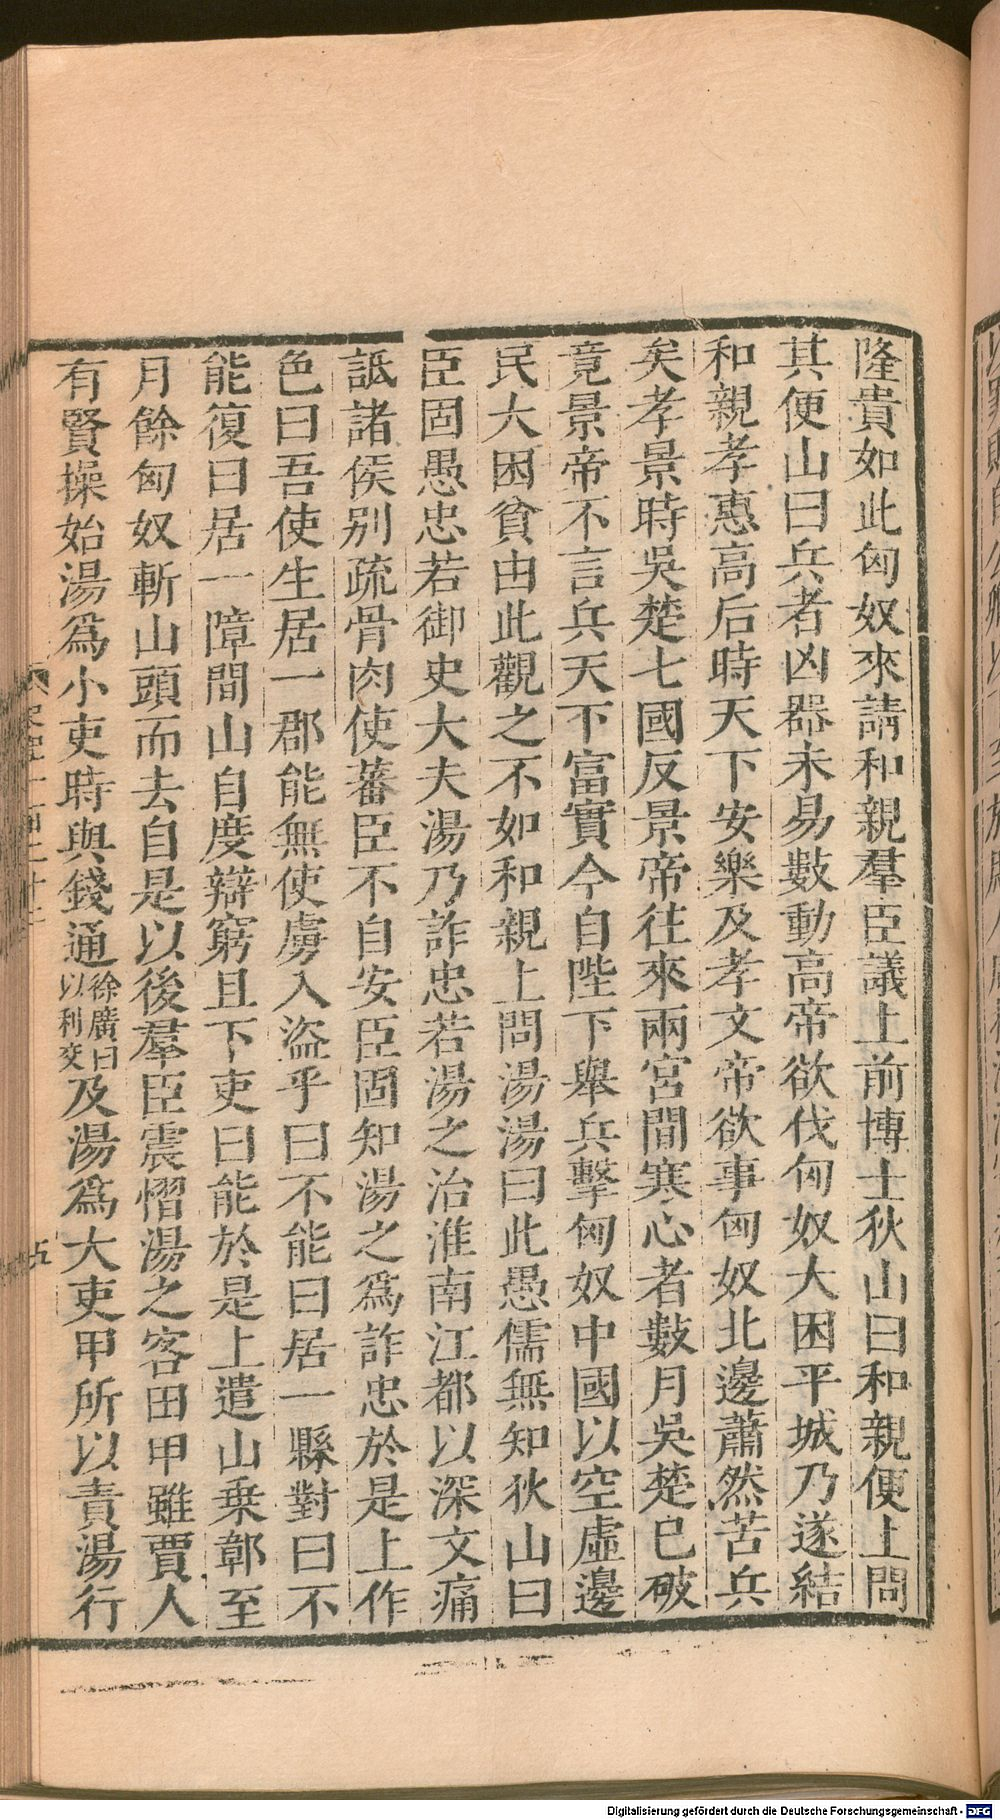 隆貴如此匈奴來請和親羣臣議上前博士狄山曰和親便上問
其便山曰兵者凶器未易數動高帝欲伐匈奴大困平城乃遂結
和親孝惠高后時天下安樂及孝文帝欲事匈奴北邊蕭然苦兵
矣孝景時吳楚七國反景帝往來兩宮間寒心者數月吳楚已破
竟景帝不言兵天下富實今自陛下舉兵擊匈奴中國以空虛邊
民大困貧由此觀之不如和親上問湯湯曰此愚儒無知狄山曰
臣固愚忠若御史大夫湯乃詐忠若湯之治淮南江都以深文痛
詆諸侯别疏骨肉使蕃臣不自安臣固知湯之爲詐忠於是上作
色曰吾使生居一郡能無使虜入盜乎曰不能曰居一縣對曰不
能復曰居一障間山自度辯窮且下吏曰能於是上遣山乗鄣至
月餘匈奴斬山頭而去自是以後羣臣震慴湯之客田甲雖賈人
有賢操始湯爲小吏時與錢通徐廣曰以利交及湯爲大吏甲所以責湯行
五
Digitalisierung gefördert durch die Deutsche Forschungsgemeinschaft - DFG